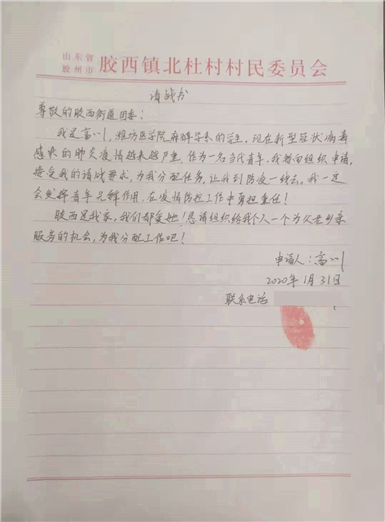 山东省
胶州市 胶西镇北杜村村民委员会
请战书
尊敬的胶西街道团委:
我是高川,潍坊医学院麻醉学系的学生,现在新型冠状病毒
感染的肺炎疫情越来越严重,作为一名当代青年,我想向组织申请,
接受我的请战要求,为我分配任务,让我到防疫一线去,我一定
会发挥青年先锋作用,在疫情防控工作中肩担重任!
胶西是我家,我们都爱她!恳请组织给我个人一个为父老乡亲
服务的机会,为我分配工作吧!
申请人:高川
2020年1月31日
联系电话